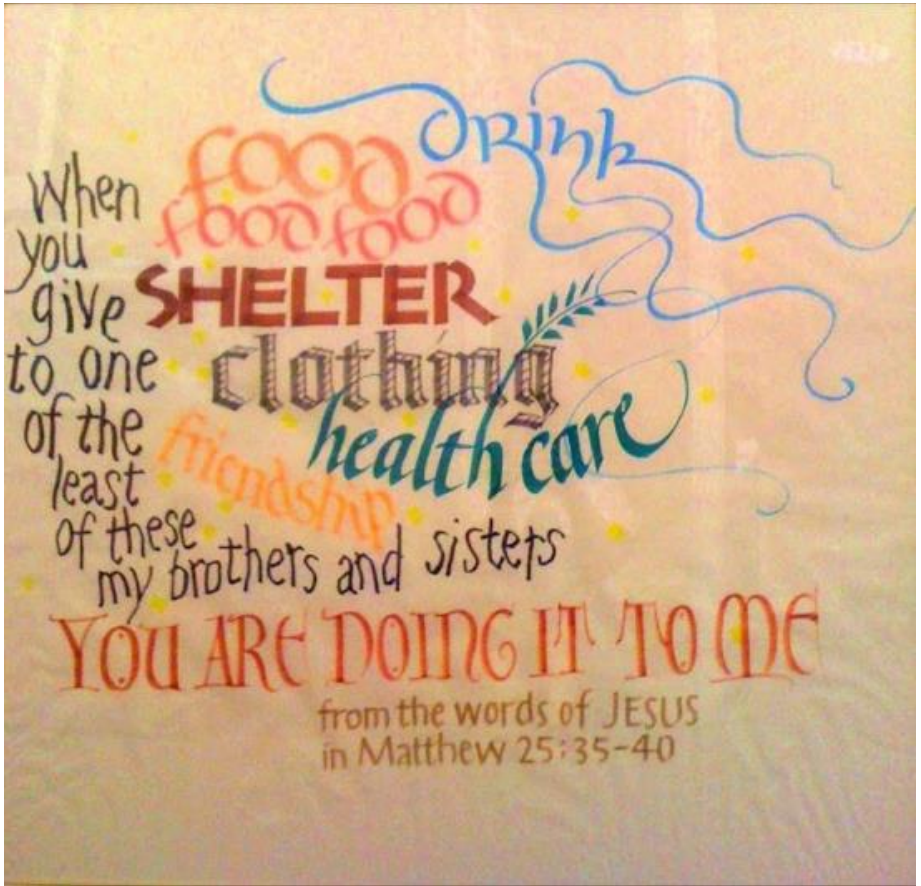 When
you
give
to one
of the
least
of these
my brothers and sisters
drink
food
food food
SHELTER
clothing
health care
friendship
YOU ARE DOING IT TO ME
from the words of JESUS
in Matthew 25:35-40